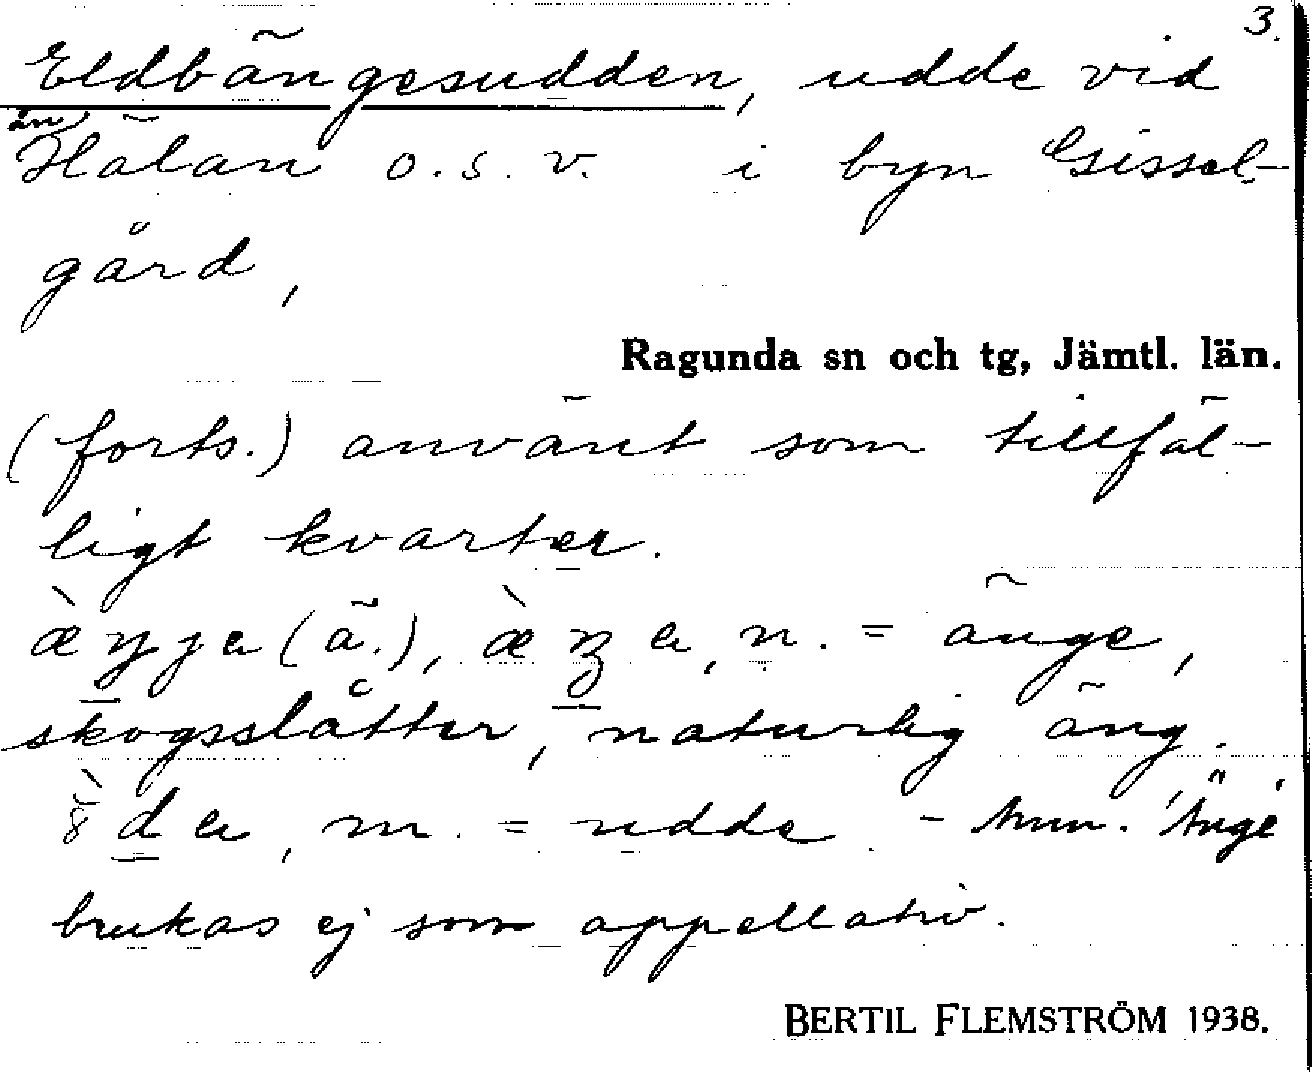 3.
Eldbängesudden, udde vid
ån Hälan o.s.v. i byn Gissel-
gård,
Ragunda sn och tg, Jämtl. län.
(forts.) använt som tillfäl-
ligt kvarter.
(ä.), n. = änge,
skogsslåtter, naturlig äng.
m. = udde - Anm. 'Änge'
brukas ej som appellativ.
BERTIL FLEMSTRÖM 1938.